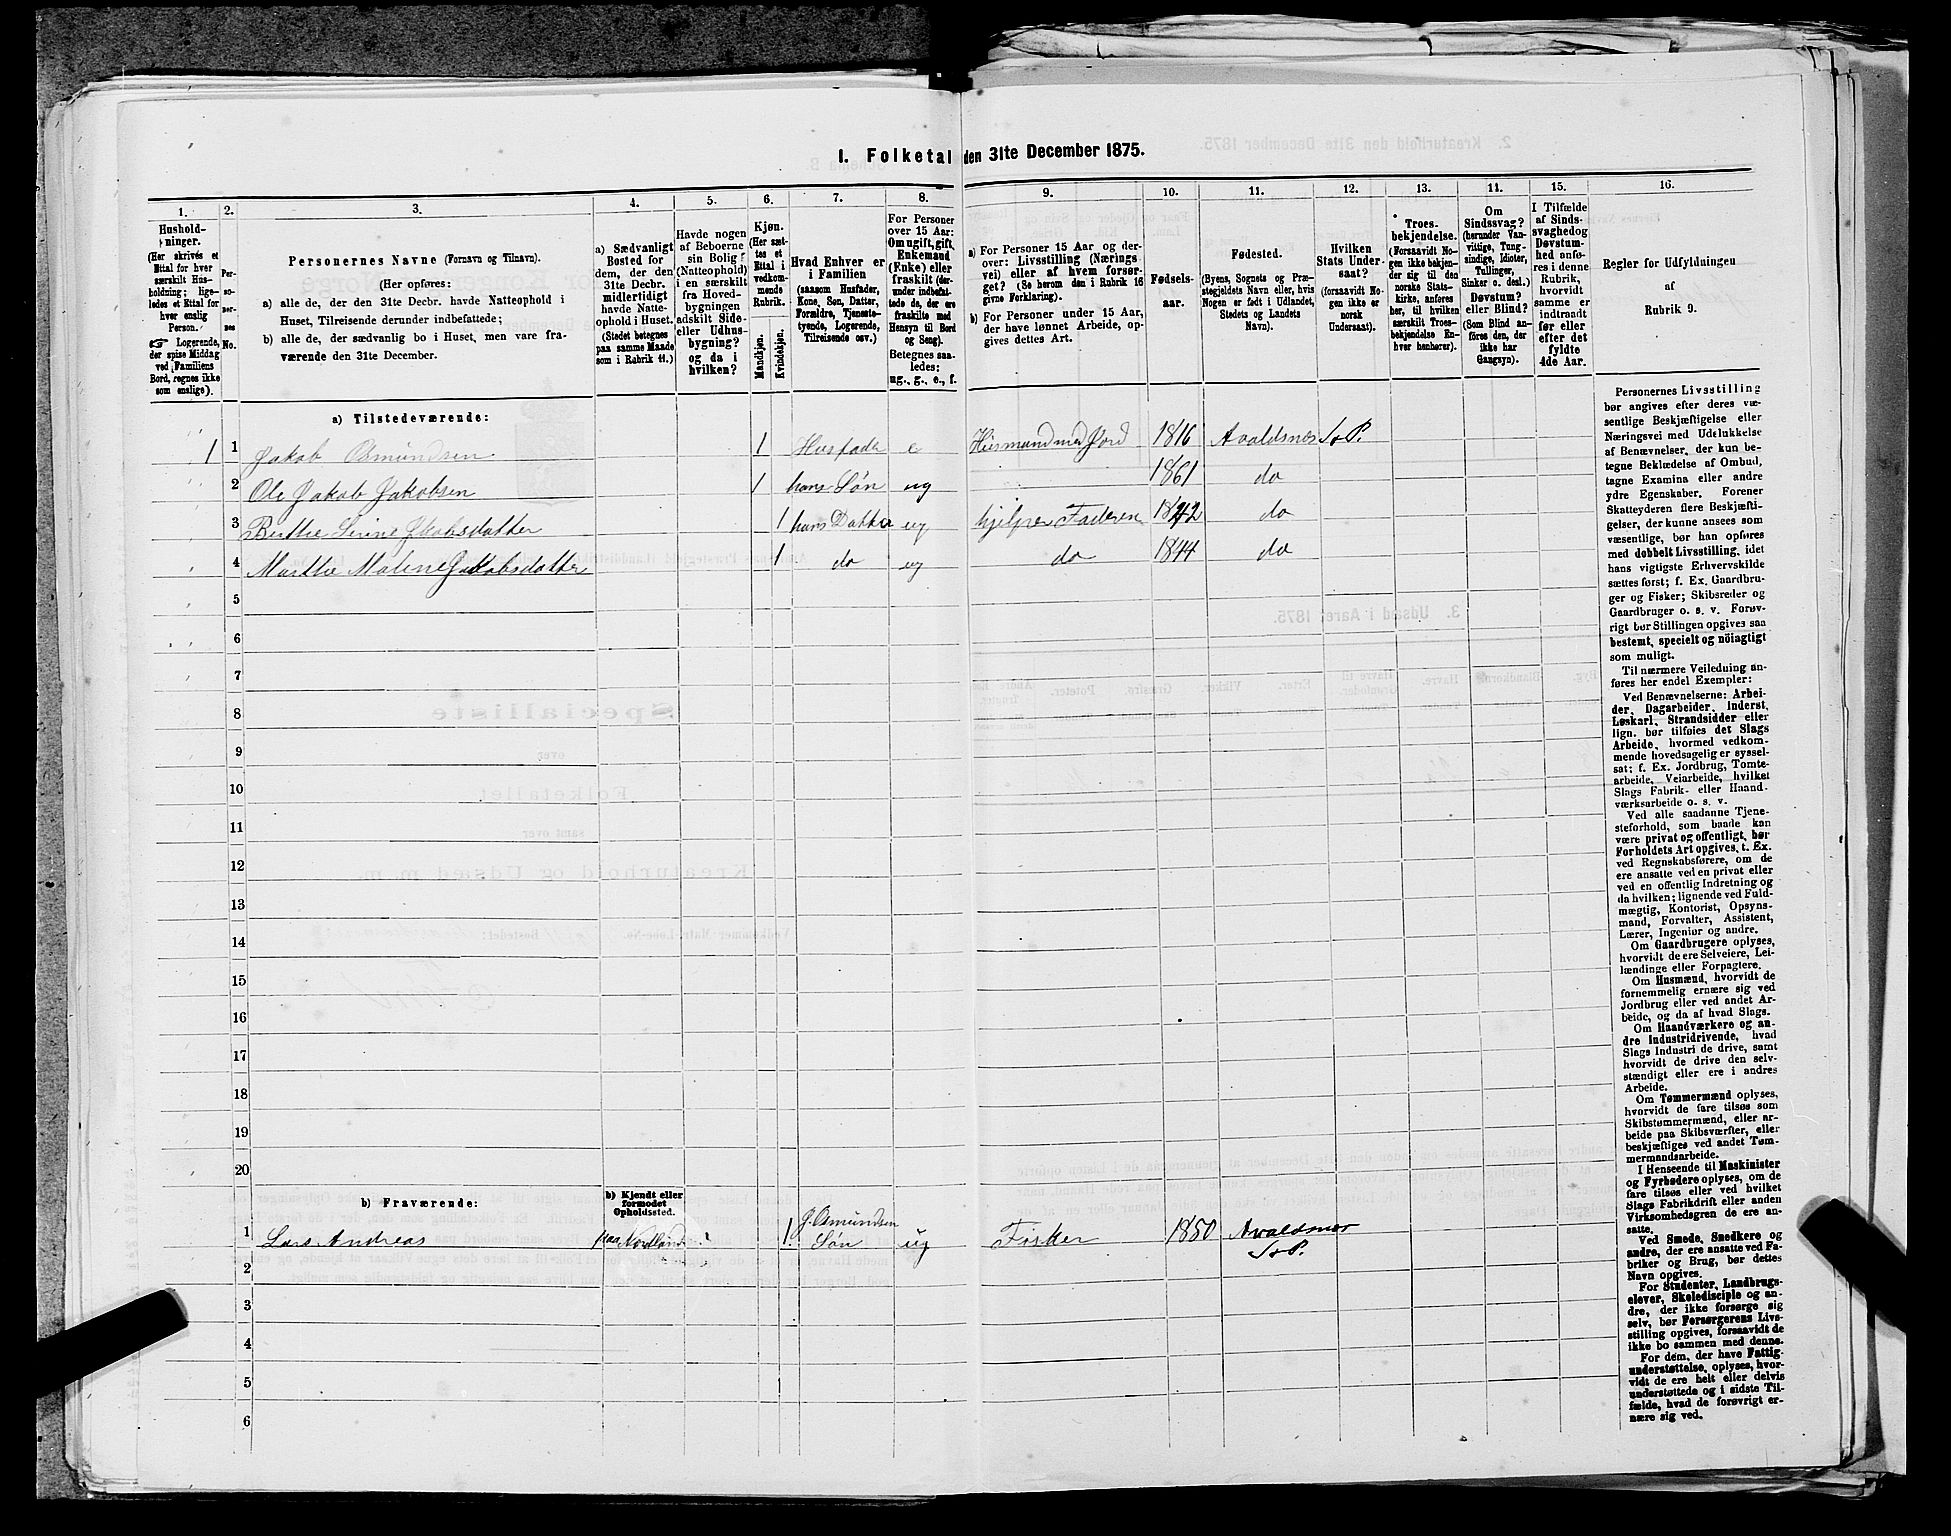 1. Folketal den 31te December 1875.
1.
Hushold-
ninger.
(Her skrives et
Ettal for hver
særskilt Hus-
holdning; lige-
ledes et Ettal for
hver enslig
Person.
Logerende,
der spise Middag
ved Familiens
Bord, regnes ikke
som enslige).
2.
Per-
so-
ner-
nes
No.
3.
Personernes Navne (Fornavn og Tilnavn).
(Her opføres:
a) alle de, der den 31te Decbr. havde Natteophold i
Huset, Tilreisende derunder indbefattede;
b) alle de, der sædvanlig bo i Huset, men vare fra-
værende den 31te December.
4.
a) Sædvanligt
Bosted for
dem, der den
31te Decbr.
midlertidigt
havde Natte-
ophold i Huset.
(Stedet betegnes
paa samme Maade
som i Rubrik 11.)
5.
Havde nogen
af Beboerne
sin Bolig
(Natteophold)
i en særskilt
fra Hoved-
bygningen
adskilt Side-
eller Udhus-
bygning?
og da i
hvilken?
6.
Kjøn.
(Her sæt-
tes et
Ettal i
vedkom-
mende
Rubrik.
Mandkjøn.
Kvindekjøn.
7.
Hvad Enhver er
i Familien
(saasom Husfader,
Kone, Søn, Datter,
Forældre, Tjeneste-
tyende, Logerende,
Tilreisende osv.)
8.
For Personer
over 15 Aar:
Om ugift, gift,
Enkemand
(Enke) eller
fraskilt (der-
under indbefat-
tede de, der ere
fraskilte med
Hensyn til Bord
og Seng).
Betegnes saa-
ledes:
ug., g., e., f.
9.
a) For Personer 15 Aar og der-
over: Livsstilling (Nærings-
vei) eller af hvem forsør-
get? (Se herom den i Rubrik 16
givne Forklaring).
b) For Personer under 15 Aar,
der have lønnet Arbeide, op-
gives dettes Art.
10.
Fødsels-
aar.
11.
Fødested.
(Byens, Sognets og Præ-
stegjeldets Navn eller, hvis
Nogen er født i Udlandet,
Stedets og Landets
Navn).
12.
Hvilken
Stats Under-
saat?
(forsaavidt No-
gen ikke er
norsk
Undersaat).
13.
Troes-
bekjendelse.
(Forsaavidt No-
gen ikke bekjen-
der sig til den
norske Stats-
kirke, anføres
her, til hvilken
særskilt Troes-
bekjendelse En-
hver henhører).
11.
Om
Sindssvag?
(herunder Van-
vittige, Tung-
sindige, Idioter,
Tullinger,
Sinker o. desl.)
Døvstum?
eller Blind?
(Som Blind an-
føres den, der
ikke har
Gangsyn).
15.
I Tilfælde
af Sinds-
svaghed og
Døvstum-
hed anfø-
res i denne
Rubrik,
hvorvidt
samme er
indtraadt
før eller
efter det
fyldte
4de Aar.
16.
Regler for Udfyldningen
af
Rubrik 9.
a) Tilstedeværende:
1 1 Jakob Osmundsen 1 Husfader e Husmand med Jord 1816 Avaldsnes S. P.
2 Ole Jakob Jakobsen 1 hans Søn ug 1861 do
3 Berthe Serine Jakobsdatter 1 hans Datter ug hjelper Faderen 1842 do
4 Marthe Malene Jakobsdatter 1 do ug do 1844 do
5
6
7
8
9
10
11
12
13
14
15
16
17
18
19
20
b) Fraværende:
b) Kjendt eller
formodet
Opholdssted.
1 Lars Andreas paa Nordland 1 J. Osmundsen
Søn ug Fisker 1850 Avaldsnes
S. P.
2
3
4
5
6
Personernes Livsstilling
bør angives efter deres væ-
sentlige Beskjæftigelse eller
Næringsvei med Udelukkelse
af Benævnelser, der kun be-
tegne Beklædelse af Ombud,
tagne Examina eller andre
ydre Egenskaber. Forener
Skatteyderen flere Beskjæfti-
gelser, der kunne ansees som
væsentlige, bør han opføres
med dobbelt Livsstilling, idet
hans vigtigste Erhvervskilde
sættes først; f. Ex. Gaardbru-
ger og Fisker; Skibsreder og
Gaardbruger o. s. v. Forøv-
rigt bør Stillingen opgives saa
bestemt, specielt og nöiagtigt
som muligt.
Til nærmere Veiledning an-
føres her endel Exempler:
Ved Benævnelserne: Arbei-
der, Dagarbeider, Inderst,
Løskarl, Strandsidder eller
lign. bør tilføies det Slags
Arbeide, hvormed vedkom-
mende hovedsagelig er syssel-
sat; f. Ex. Jordbrug, Tomte-
arbeide, Veiarbeide, hvilket
Slags Fabrik- eller Haand-
værksarbeide o. s. v.
Ved alle saadanne Tjene-
steforhold, som baade kan
være privat og offentligt, bør
Forholdets Art opgives, t. Ex.
ved Regnskabsførere, om de
ere ansatte ved en privat eller
ved en offentlig Indretning og
da hvilken; lignende ved Fuld-
mægtig, Kontorist, Opsyns-
mand, Forvalter, Assistent,
Lærer, Ingeniør og andre.
Om Gaardbrugere oplyses,
hvorvidt de ere Selveiere, Lei-
lændinge eller Forpagtere.
Om Husmænd, hvorvidt de
fornemmelig ernære sig ved
Jordbrug eller ved andet Ar-
beide, og da af hvad Slags.
Om Haandværkere og an-
dre Industridrivende, hvad
Slags Industri de drive, samt
hvorvidt de drive den selv-
stændigt eller ere i andres
Arbeide.
Om Tømmermænd oplyses,
hvorvidt de fare tilsøs som
Skibstømmermænd, eller ar-
beide paa Skibsværfter, eller
beskjæftiges ved andet Tøm-
mermandsarbeide.
I Henseende til Maskinister
og Fyrbødere oplyses, om de
fare tilsøs eller ved hvilket
Slags Fabrikdrift eller anden
Virksomhedsgren de ere an-
satte.
Ved Smede, Snedkere og
andre, der ere ansatte ved Fa-
briker og Brug, bør dettes
Navn opgives.
For Studenter, Landbrugs-
elever, Skoledisciple og an-
dre, der ikke forsørge sig
selv, bør Forsørgerens Livs-
stilling opgives, forsaavidt de
ikke bo sammen med denne.
For dem, der have Fattig-
understøttelse, oplyses, hvor-
vidt de ere helt eller delvis
understøttede og i sidste Til-
fælde, hvad de forøvrigt er-
nære sig ved.